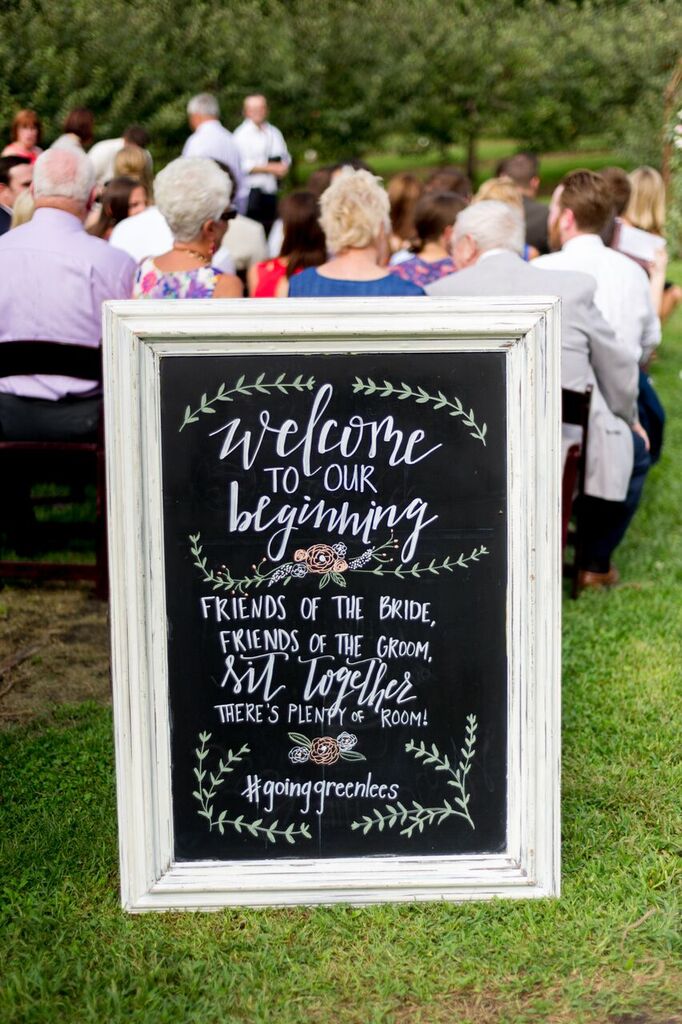 welcome
TO OUR
beginning
FRIENDS OF THE BRIDE,
FRIENDS OF THE GROOM,
sit together
THERE'S PLENTY OF ROOM!
#goinggreenlees